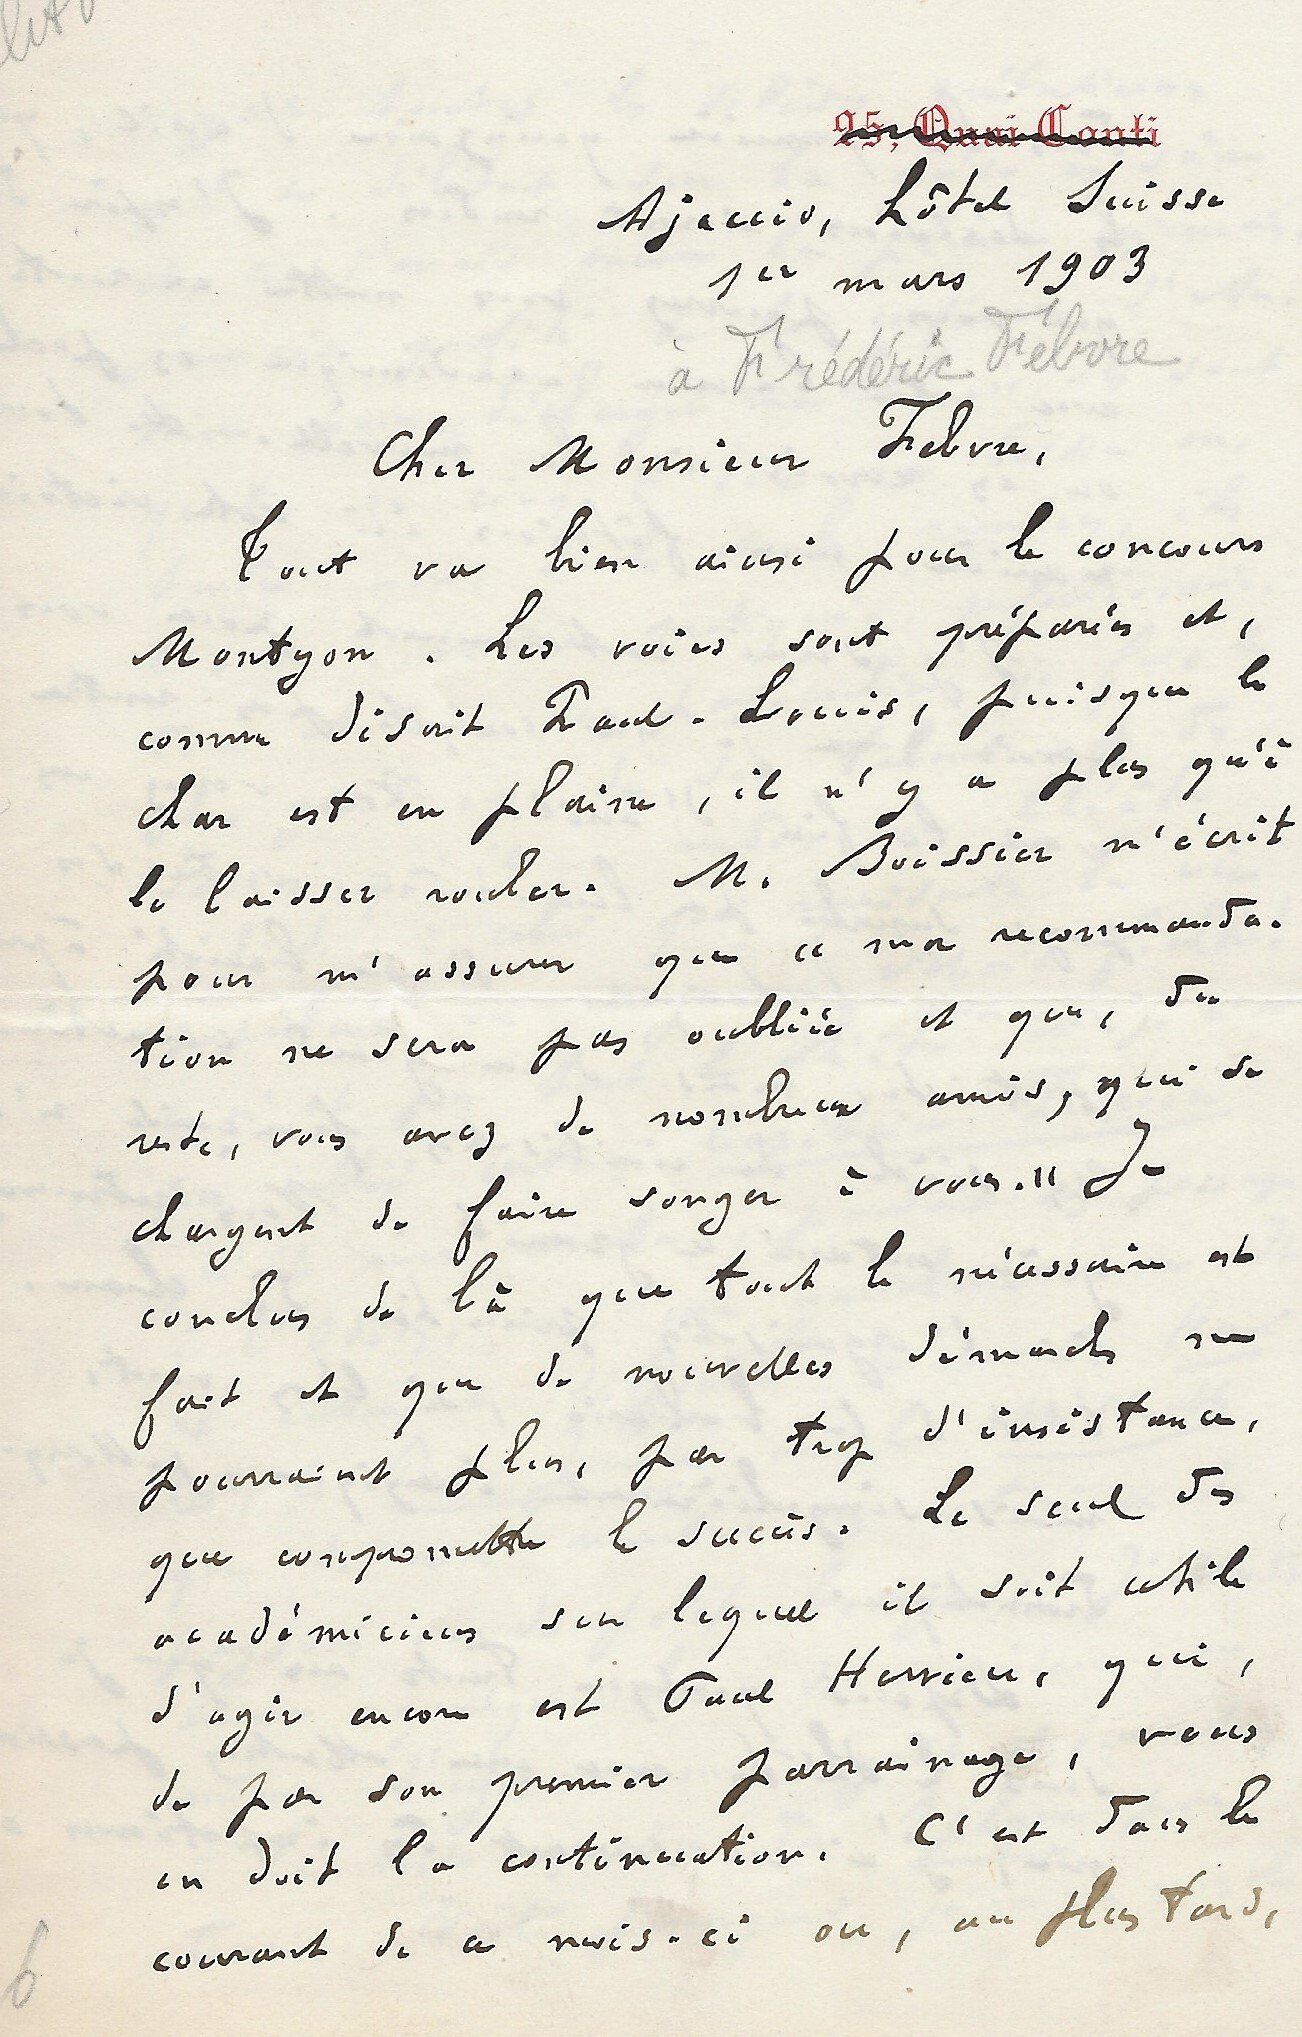 25, Quai Conti
Ajaccio, hôtel Suisse
1er mars 1903
à Frédéric Febvre
Cher Monsieur Febvre,
Tout va bien ainsi pour le concours
Montyon. Les voies sont préparées et,
comme disait Paul-Louis, puisque le
char est en plaine, il n'y a plus qu'à
le laisser rouler. M. Boissier m'écrit
pour m'assurer que « ma recommanda-
tion ne sera pas oubliée et que, du
reste, vous avez de nombreux amis, qui se
chargent de faire songer à vous. » Je
conclus de là que tout le nécessaire est
fait et que de nouvelles démarches ne
pourraient plus, par trop d'insistance,
que compromettre le succès. Le seul des
académiciens sur lequel il soit utile
d'agir encore est Paul Hervieu, qui,
de par son premier parrainage, vous
en doit la continuation. C'est dans le
courant de ce mois-ci ou, au plus tard,
6